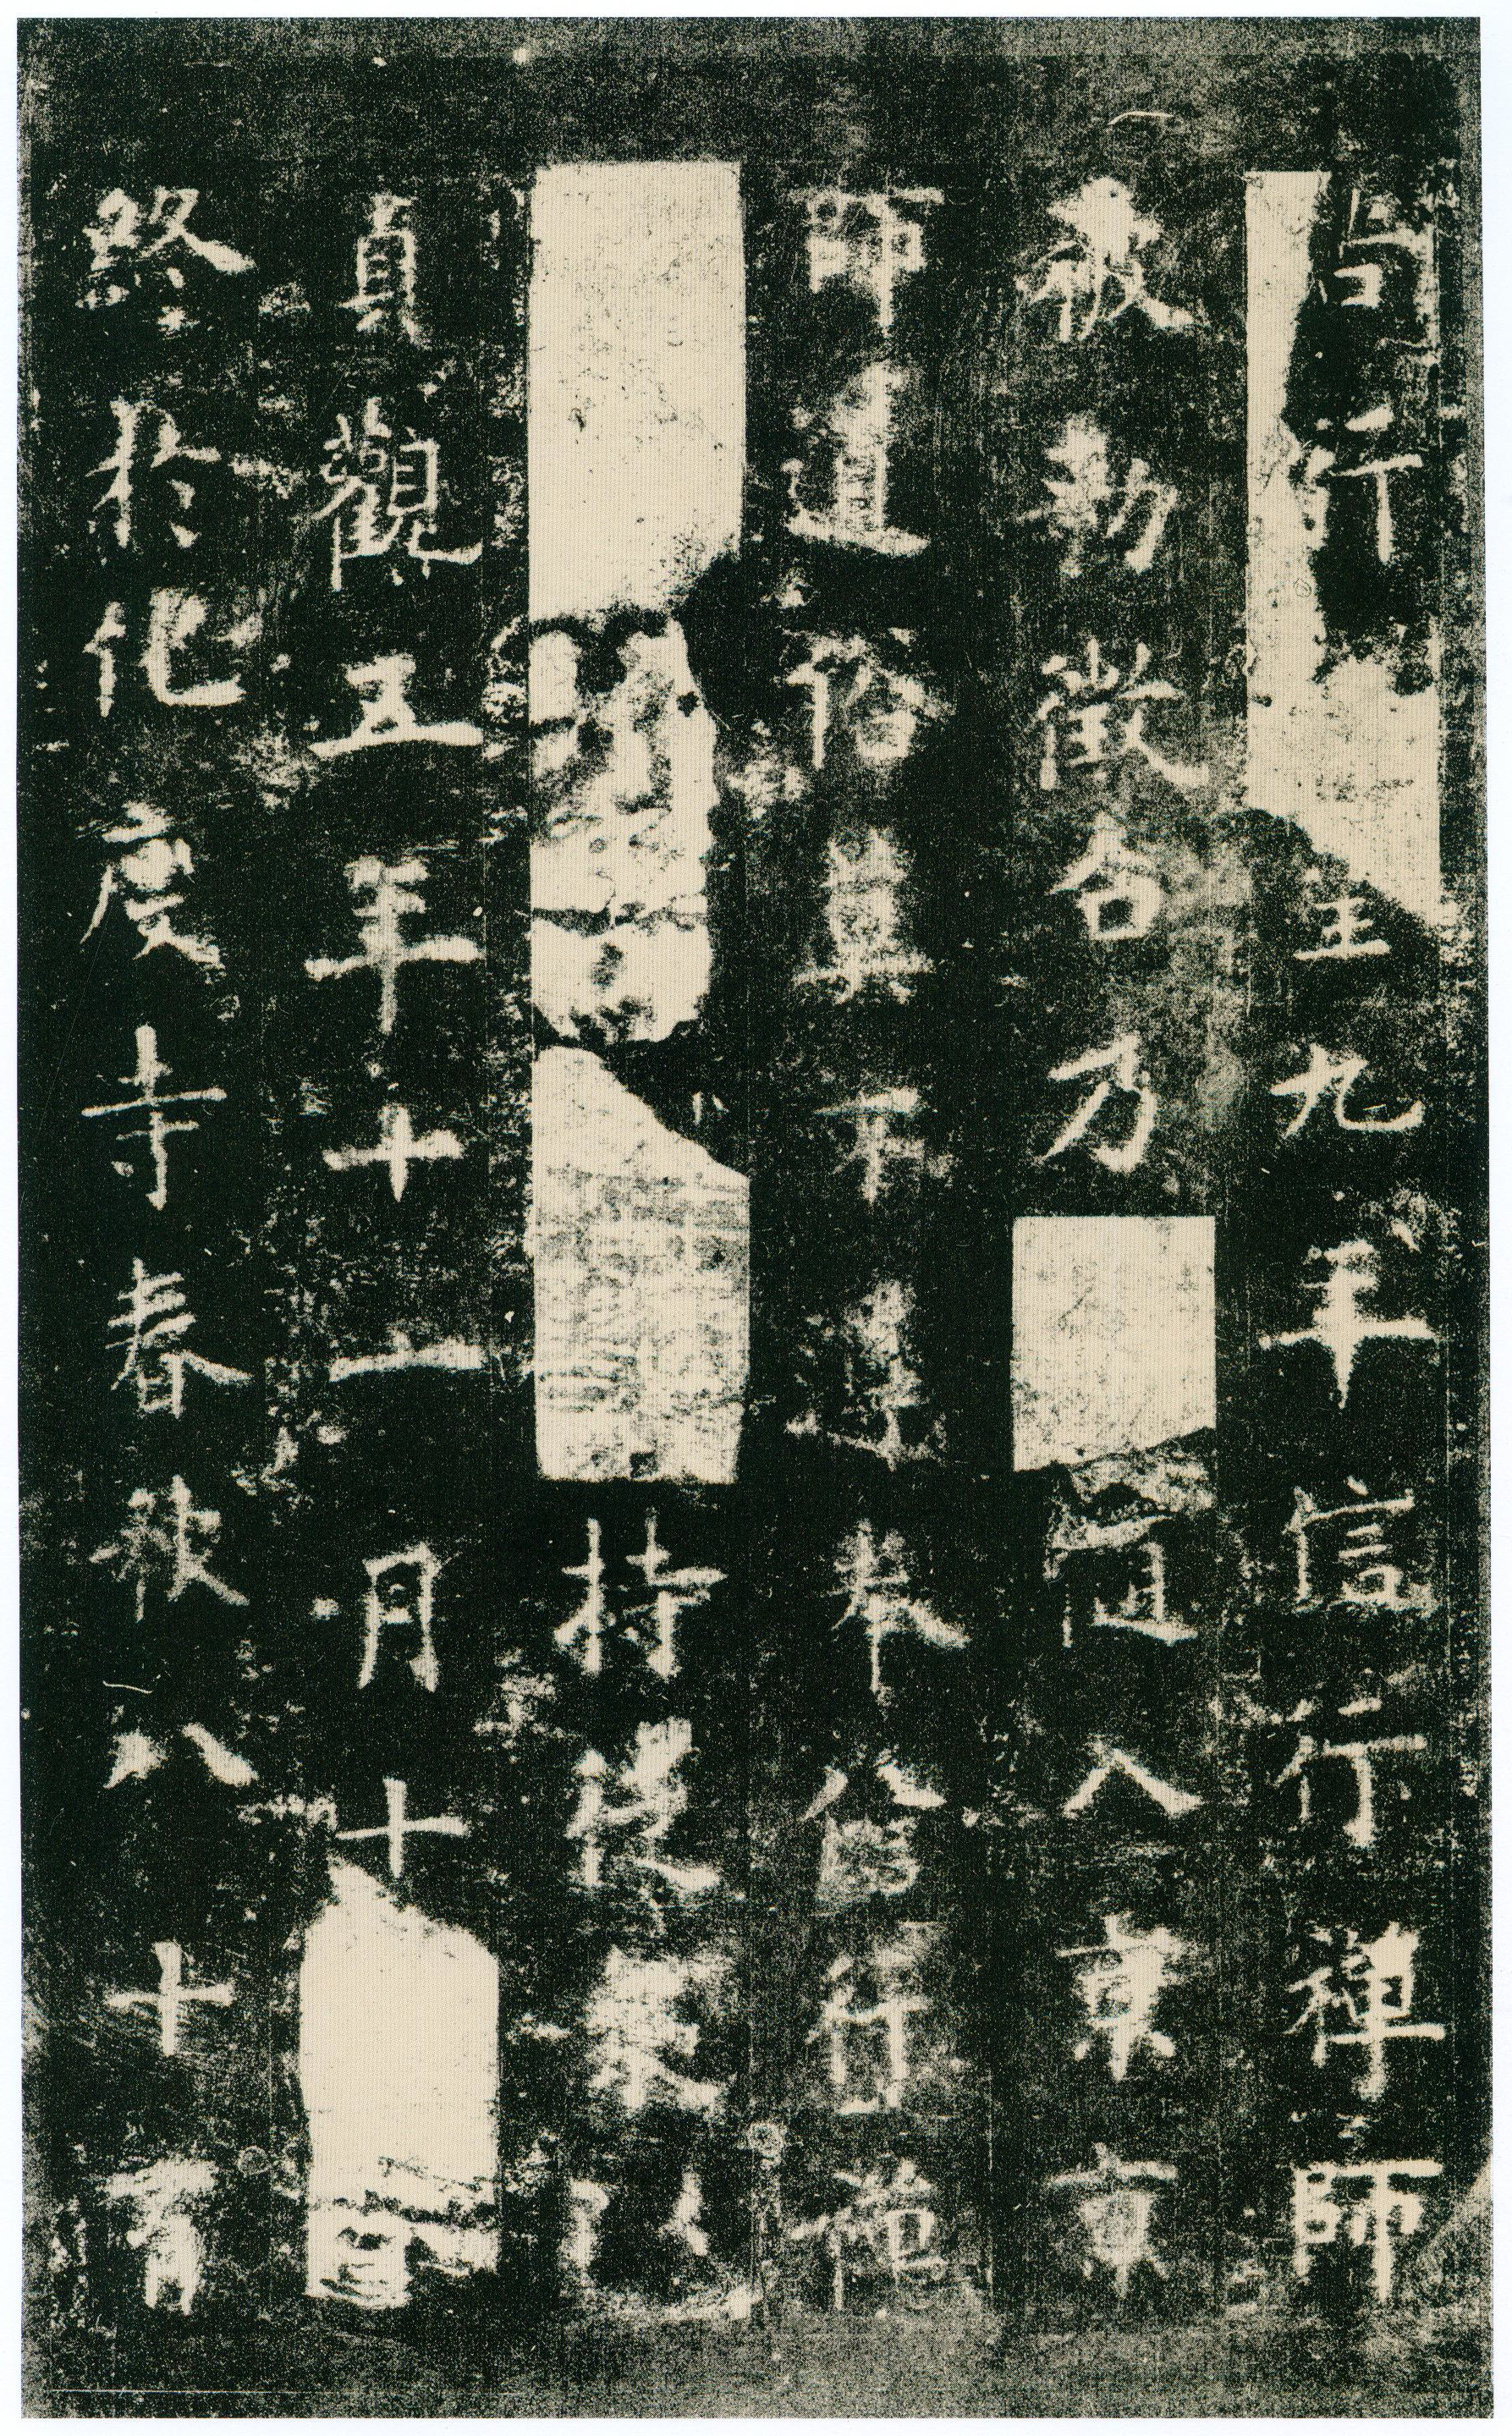 行皇九年信行禪師
被勅徵召乃入京京
師道俗莫不遵奉信行禪
持徒衆以
貞觀五年十一月十
終於化度寺春秋八十有